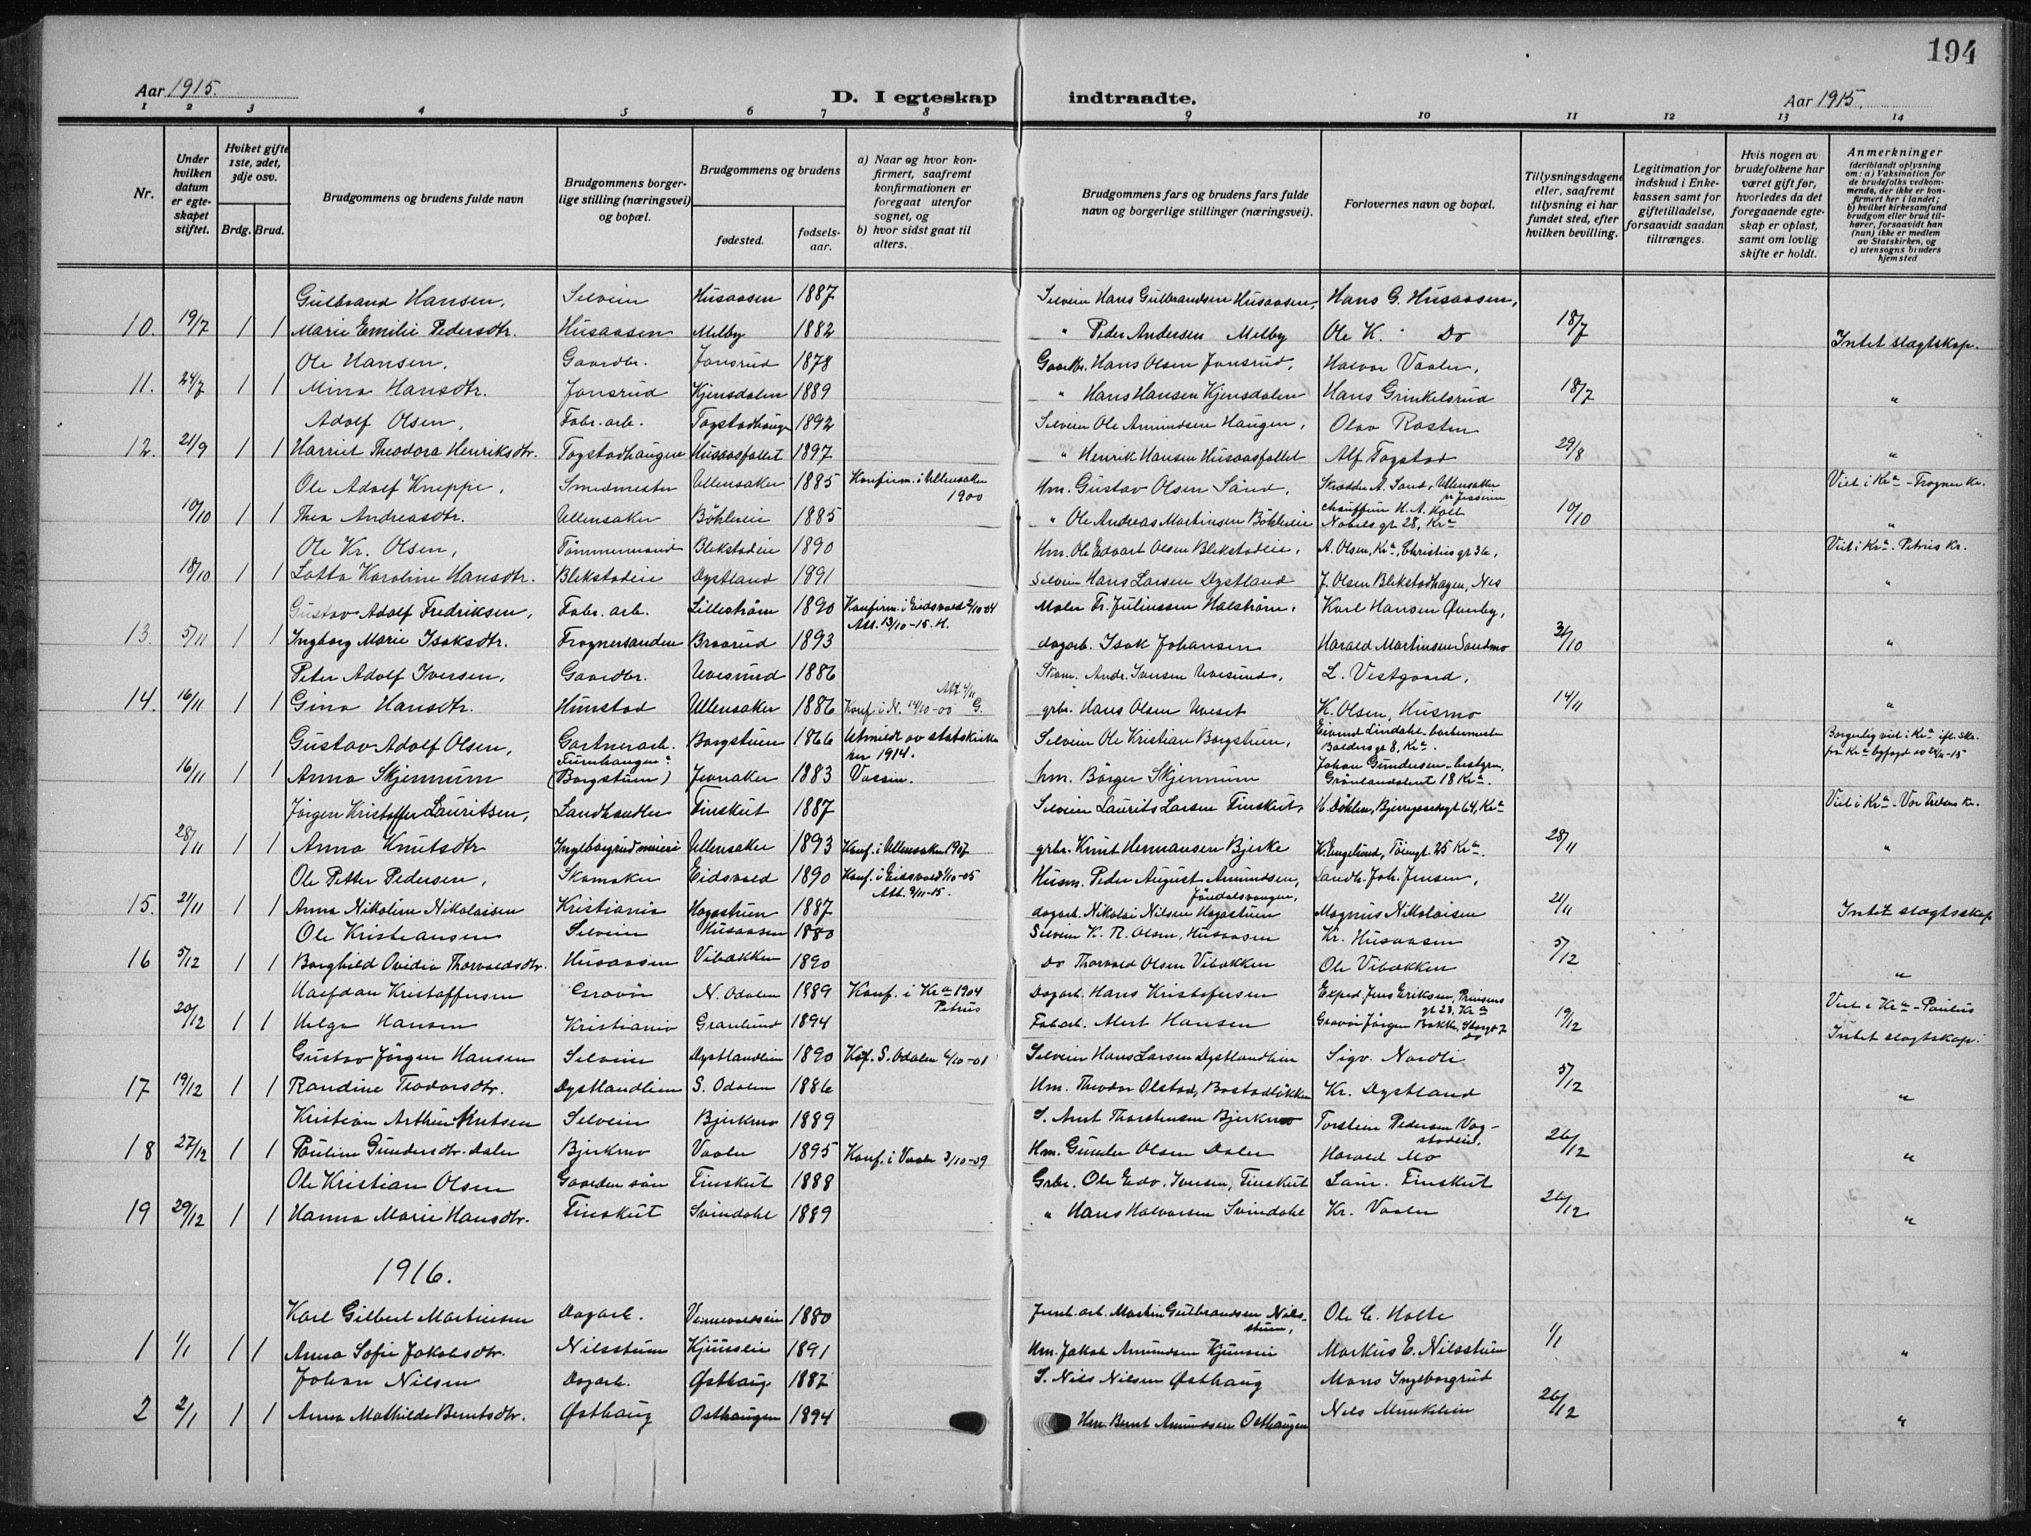 194
Aar 1915. D. I egteskap indtraadte. Aar 1915.
1 2 3 4 5 6 7 8 9 10 11 12 13 14
Nr.
Under hvilken datum er egteskapet stiftet.
Hviket gifte 1ste, 2det, 3dje osv.
Brdg. Brud.
Brudgommens og brudens fulde navn
Brudgommens borgerlige stilling (næringsvei) og bopæl.
Brudgommens og brudens
fødested.
fødselsaar.
a) Naar og hvor konfirmert, saafremt konfirmationen er foregaat utenfor sognet, og
b) hvor sidst gaat til alters.
Brudgommens fars og brudens fars fulde navn og borgerlige stillinger (næringsvei).
Forlovernes navn og bopæl.
Tillysningsdagene eller, saafremt tillysning ei har fundet sted, efter hvilken bevilling.
Legitimation for indskud i Enkekassen samt for giftetilladelse, forsaavidt saadan tiltrænges.
Hvis nogen av brudefolkene har været gift før, hvorledes da det foregaaende egteskap er opløst, samt om lovlig skifte er holdt.
Anmerkninger
(deriblandt oplysning om: a) Vaksination for de brudefolks vedkommende, der ikke er konfirmert her i landet; b) hvilket kirkesamfund brudgom eller brud tilhører, forsaavidt han (hun) ikke er medlem av Statskirken, og c) utensogns bruders hjemsted
Gulbrand Hansen, Selveier Husaasen 1887 Selveier Hans Gulbrandsen Husaasen, Hans G. Husaasen,
10. 19/7 1 1 Marie Emilie Pedersdtr. Husaasen Melby 1882 " Peder Andersen Melby Ole K. Do 18/7 Intet slagtskap.
Ole Hansen, Gaardbr. Jonsrud 1878 Gaardbr. Hans Olsen Jonsrud, Halvor Vaaler,
11. 24/7 1 1 Mina Hansdtr. Jonsrud Kjensdalen 1889 " Hans Hansen Kjensdalen Hans Grinkelsrud 18/7 "
Adolf Olsen, Fabr. arb. Togstadhaugen 1892 Selveier Ole Amundsen Haugen, Olav Rasten
12. 21/9 1 1 Harriet Theodora Henriksdtr. Togstadhaugen Husaasfallet 1897 " Henrik Hansen Husaasfallet Alf Togstad 29/8 "
Ole Adolf Kneppe, Smedmester Ullensaker 1885 Konfirm. i Ullensaker 1900 Hm. Gustav Olsen Sand, Skrædder A. Sand, Ullensaker Viet i Kr.a - Frogner Kr.
10/10 1 1 Thea Andreasdtr. Ullensaker Bøhlereie 1885 " Ole Andreas Martinsen Bøhlereie chauffeur H. A. Holt Nobels gt 28, Kr.a 10/10 "
Ole Kr. Olsen, Tømmermand Blekstadeie 1890 Hm. Ole Edvart Olsen Blekstadeie, A. Olsen, Kr.a, Christies gt 36, Viet i Kr.a - Petrus Kr.
18/10 1 1 Lotta Karoline Hansdtr. Blekstadeie Dystland 1891 Selveier Hans Larsen Dystland J. Olsen Blekstadhagen, Nes "
Gustav Adolf Fredriksen, Fabr. arb. Lillestrøm 1890 Konfirm. i Eidsvold 2/10-04 Att. 13/10-15. H. Maler Fr. Juliussen Halstrøm, Karl Hansen Ørnby,
13. 5/11 1 1 Ingborg Marie Isaksdtr. Frognersanden Braarud 1893 dagarb. Isak Johansen Harald Martinsen Sandmo 31/10 "
Peter Adolf Iversen, Gaardbr. Uvesund 1886 Skom. Andr. Iversen Uvesund, L. Vestgaard,
14. 16/11 1 1 Gina Hansdtr. Hunstad Ullensaker 1886 Konf. i N. 14/10-00 Att. 4/11 G. grbr. Hans Olsen Uveset K. Olsen, Husmo 14/11 "
Gustav Adolf Olsen, Gartnerarb. Borgstuen 1866 Utmeldt av statskirken 1914. Selveier Ole Kristian Borgstuen, Eivind Lindahl - barbermester Balders gt 8, Kr.a. Borgerlig viet i Kr.a ifl. Skr. fra Kr.a byfogd av 24/11-15
16/11 1 1 Anna Skjennum (Borgstuen) Jevnaker 1883 hm. Børger Skjennum Johan Gundersen - bestyrer, Grønlandsleret 18 Kr.a.
Jørgen Kristoffer Lauritsen, Landhandler Finskut 1887 Selveier Laurits Larsen Finskut, H. Døhlen, Bjerregaardsgt 64, Kr.a Viet i Kr.a - Vor Frelsers Kr.
28/11 1 1 Anna Knutsdtr Ingeborgrud meieri Ullensaker 1893 Konf. i Ullensaker 1907 grbr. Knut Hermansen Bjerke K. Engelund, Tøiengt. 25 Kr.a. 28/11 "
Ole Petter Pedersen, Skomaker Eidsvold 1890 Konf. i Eidsvold 1/10-05 Att. 3/11-15. Husm. Peder August Amundsen, Landh. Joh. Jensen,
15. 21/11 1 1 Anna Nikoline Nikolaisen Kristiania Hagastuen 1887 dagarb. Nikolai Nilsen Hagastuen Magnus Nikolaisen 21/11 Intet slagtsskap
Ole Kristiansen Selveier Husaasen 1880 Selveier K. R. Olsen, Husaasen Kr. Husaasen
16 5/12 1 1 Borghild Ovidia Thorvaldsdtr. Husaasen Vibakken 1890 Do Thorvald Olsen Vibakken Ole Vibakken 5/12 "
Halfdan Kristoffersen Gravør N. Odalen 1889 Konf. i Kr.a 1904 Petrus Dagarb. Hans Kristofersen Exped. Jens Eriksen, Prinsens gt 23, Kr.a Viet i Kr.a - Paulus
20/12 1 1 Helga Hansen Kristiania Granlund 1894 Fabarb. Alert Hansen Gravør Jørgen Bakke, Storgt 7 do 19/12
Gustav Jørgen Hansen Selveier Dystlandlien 1890 Kof. S. Odalen 6/10-01 Selveier Hans Larsen Dystlandlien Sigv. Nordli Intet slagtskap.
17 19/12 1 1 Randine Teodorsdtr. Dystlandlien S. Odalen 1886 Hm. Theodor Olstad, Bostadløkken Kr. Dystland 5/12 "
Kristian Arthur Arntsen Selveier Bjerkmo 1889 S. Arnt Thorstensen Bjerkmo Torstein Pedersen Vogstadeie,
18 27/12 1 1 Pauline Gundersdtr. Dalen Bjerkmo Vaaler 1895 Konf. i Vaaler 3/10-09 Hm. Gunder Olsen Dalen Harald Mo 26/12 "
Ole Kristian Olsen Gaardersøn Finskut 1888 Grbr. Ole Edv. Iversen, Finskut Laur. Finskut
19 29/12 1 1 Hanna Marie Hansdtr. Finskut Svindahl 1889 " Hans Halvorsen Svindahl Kr. Vaaler 26/12 "
1916.
Karl Gilbert Martinsen Dagarb. Vennevoldseie 1880 Jernb. arb. Martin Gulbrandsen Nilsstuen, Ole C. Holte
1 1/1 1 1 Anna Sofie Jakobsdtr. Nilsstuen Kjunseie 1891 Hm. Jakob Amundsen Kjunseie Markus E. Nilsstuen 1/1 "
Johan Nilsen Dagarb. Østhaug 1887 S. Nils Nilsen Østhaug Mons Ingeborgrud
2 2/1 1 1 Anna Mathilde Berntsdtr. Østhaug Osthaugen 1894 Hm. Bernt Amundsen Osthaugen Nils Munkelein 26/12 "